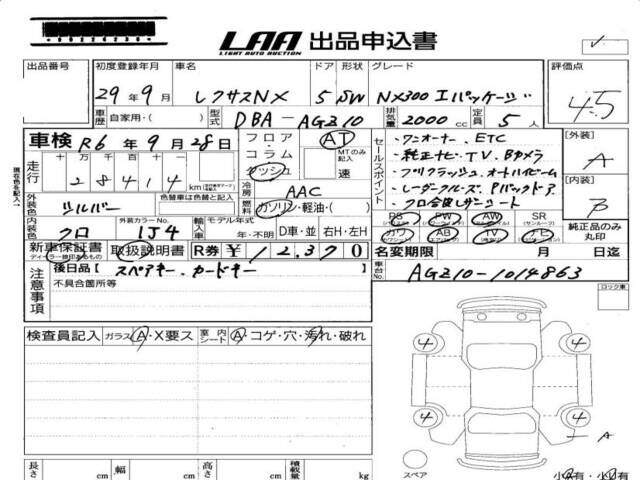 LAA 出品申込書
LIGHT AUTO AUCTION
出品番号 初度登録年月 車名 ドア 形状 グレード 評価点
29年9月 レクサスNX 5 SW NX300 Iパッケージ 4.5
車歴 自家用・( ) 型式 DBA-AGZ10 排気量 2000cc 定員 5人
車検 R6年9月28日
フロア・コラム
AT
MTのみ記入
速
セールスポイント
・ワンオーナー、ETC
・純正ナビ、TV、Bカメラ
・プリクラッシュ、オートハイビーム
・レーダークルーズ、Pバックドア
・クロ合皮Lサンシート
[外装]
A
[内装]
B
走行 十万千百十
28414 km
冷房 AAC
燃料 ガソリン・軽油・( )
外装色 シルバー
色替車は色替と記入
内装色 クロ
外装カラーNo. 1J4
輸入車 モデル年式 年・不明 D車・並 右H・左H
PS PW AW SR
(サンルーフ)
カワ AB TV ナビ
純正品のみ丸印
新車保証書 取扱説明書 R券 ¥12,370
名変期限 月 日迄
注意事項
後日品 [ スペアキー、カードキー
不具合箇所等
車台No. AGZ10-1014863
ロック車
検査員記入 ガラス A・X要ス 室内シート A・コゲ・穴・汚れ・破れ
4 4
4 4
A
スペア
長さ cm 幅 cm 高さ cm 積載量 kg
小A有・小U有